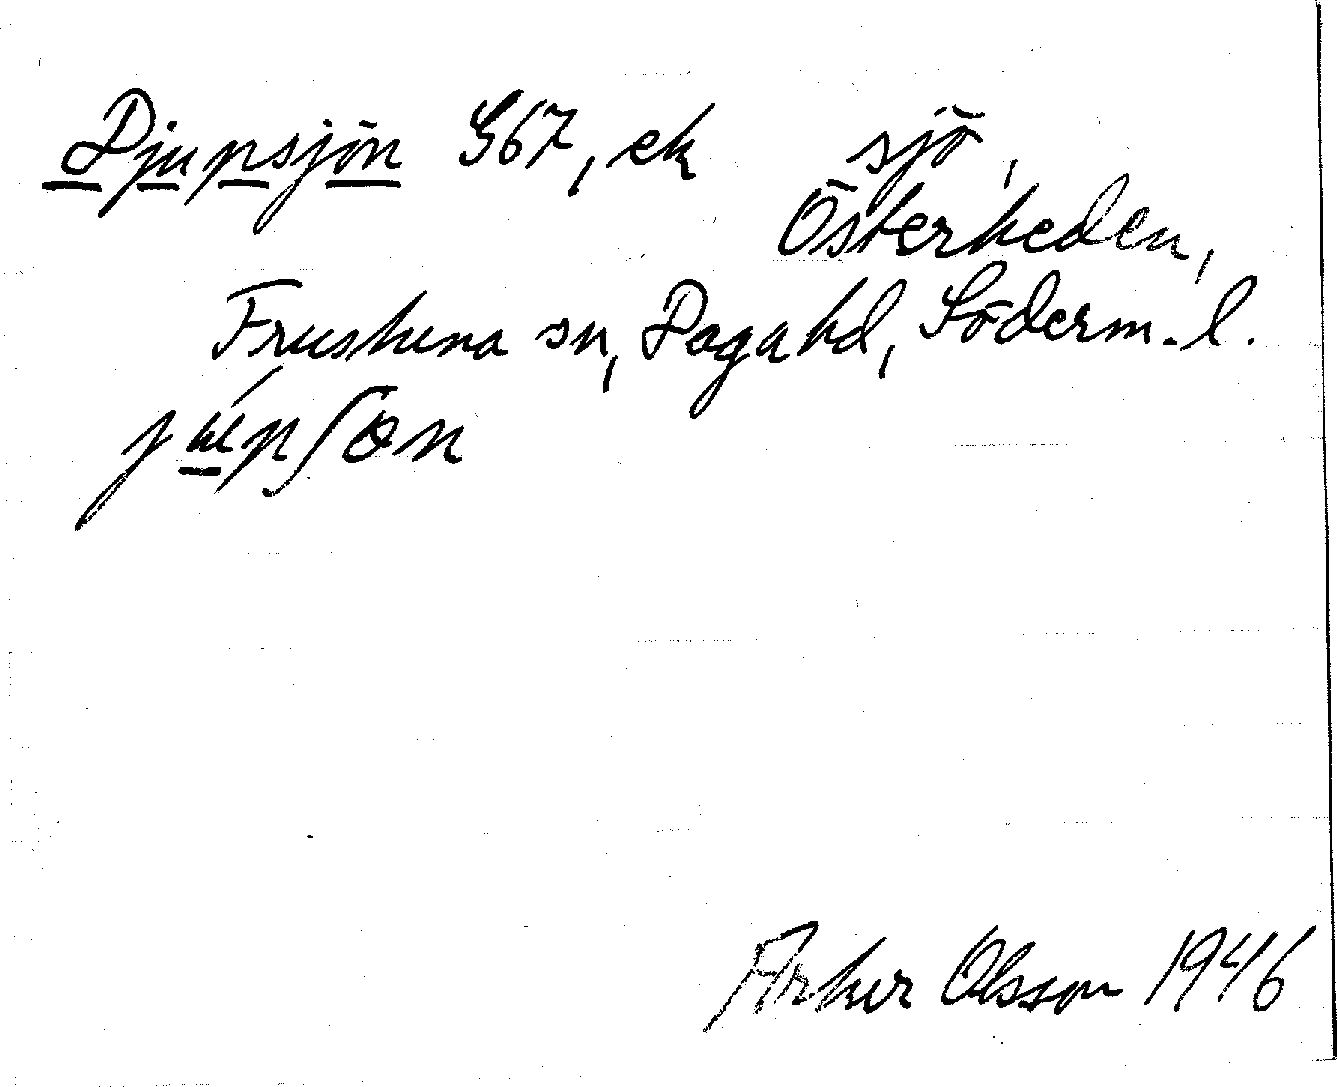 Djupsjön G67, ek sjö,
Österheden,
Frustuna sn, Daga hd, Söderm. l.
Artur Olsson 1946